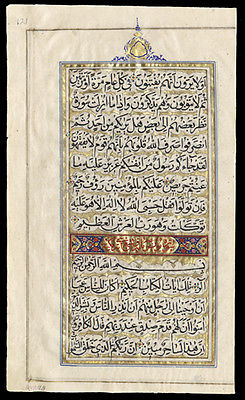 أولا يرون أنهم يفتنون في كل عام مرة أو مرتين
ثم لا يتوبون ولا هم يذكرون وإذا ما أنزلت سورة
نظر بعضهم إلى بعض هل يراكم من أحد ثم
انصرفوا صرف الله قلوبهم بأنهم قوم لا يفقهون
لقد جاءكم رسول من أنفسكم عزيز عليه ما
عنتم حريص عليكم بالمؤمنين رؤف رحيم
فإن تولوا فقل حسبي الله لا إله إلا هو عليه
توكلت وهو رب العرش العظيم
بسم الله الرحمن الرحيم
الر تلك آيات الكتاب الحكيم أكان للناس عجبا
أن أوحينا إلى رجل منهم أن أنذر الناس وبشر الذين
آمنوا أن لهم قدم صدق عند ربهم قال الكافرون
إن هذا لساحر مبين إن ربكم الله الذي خلق